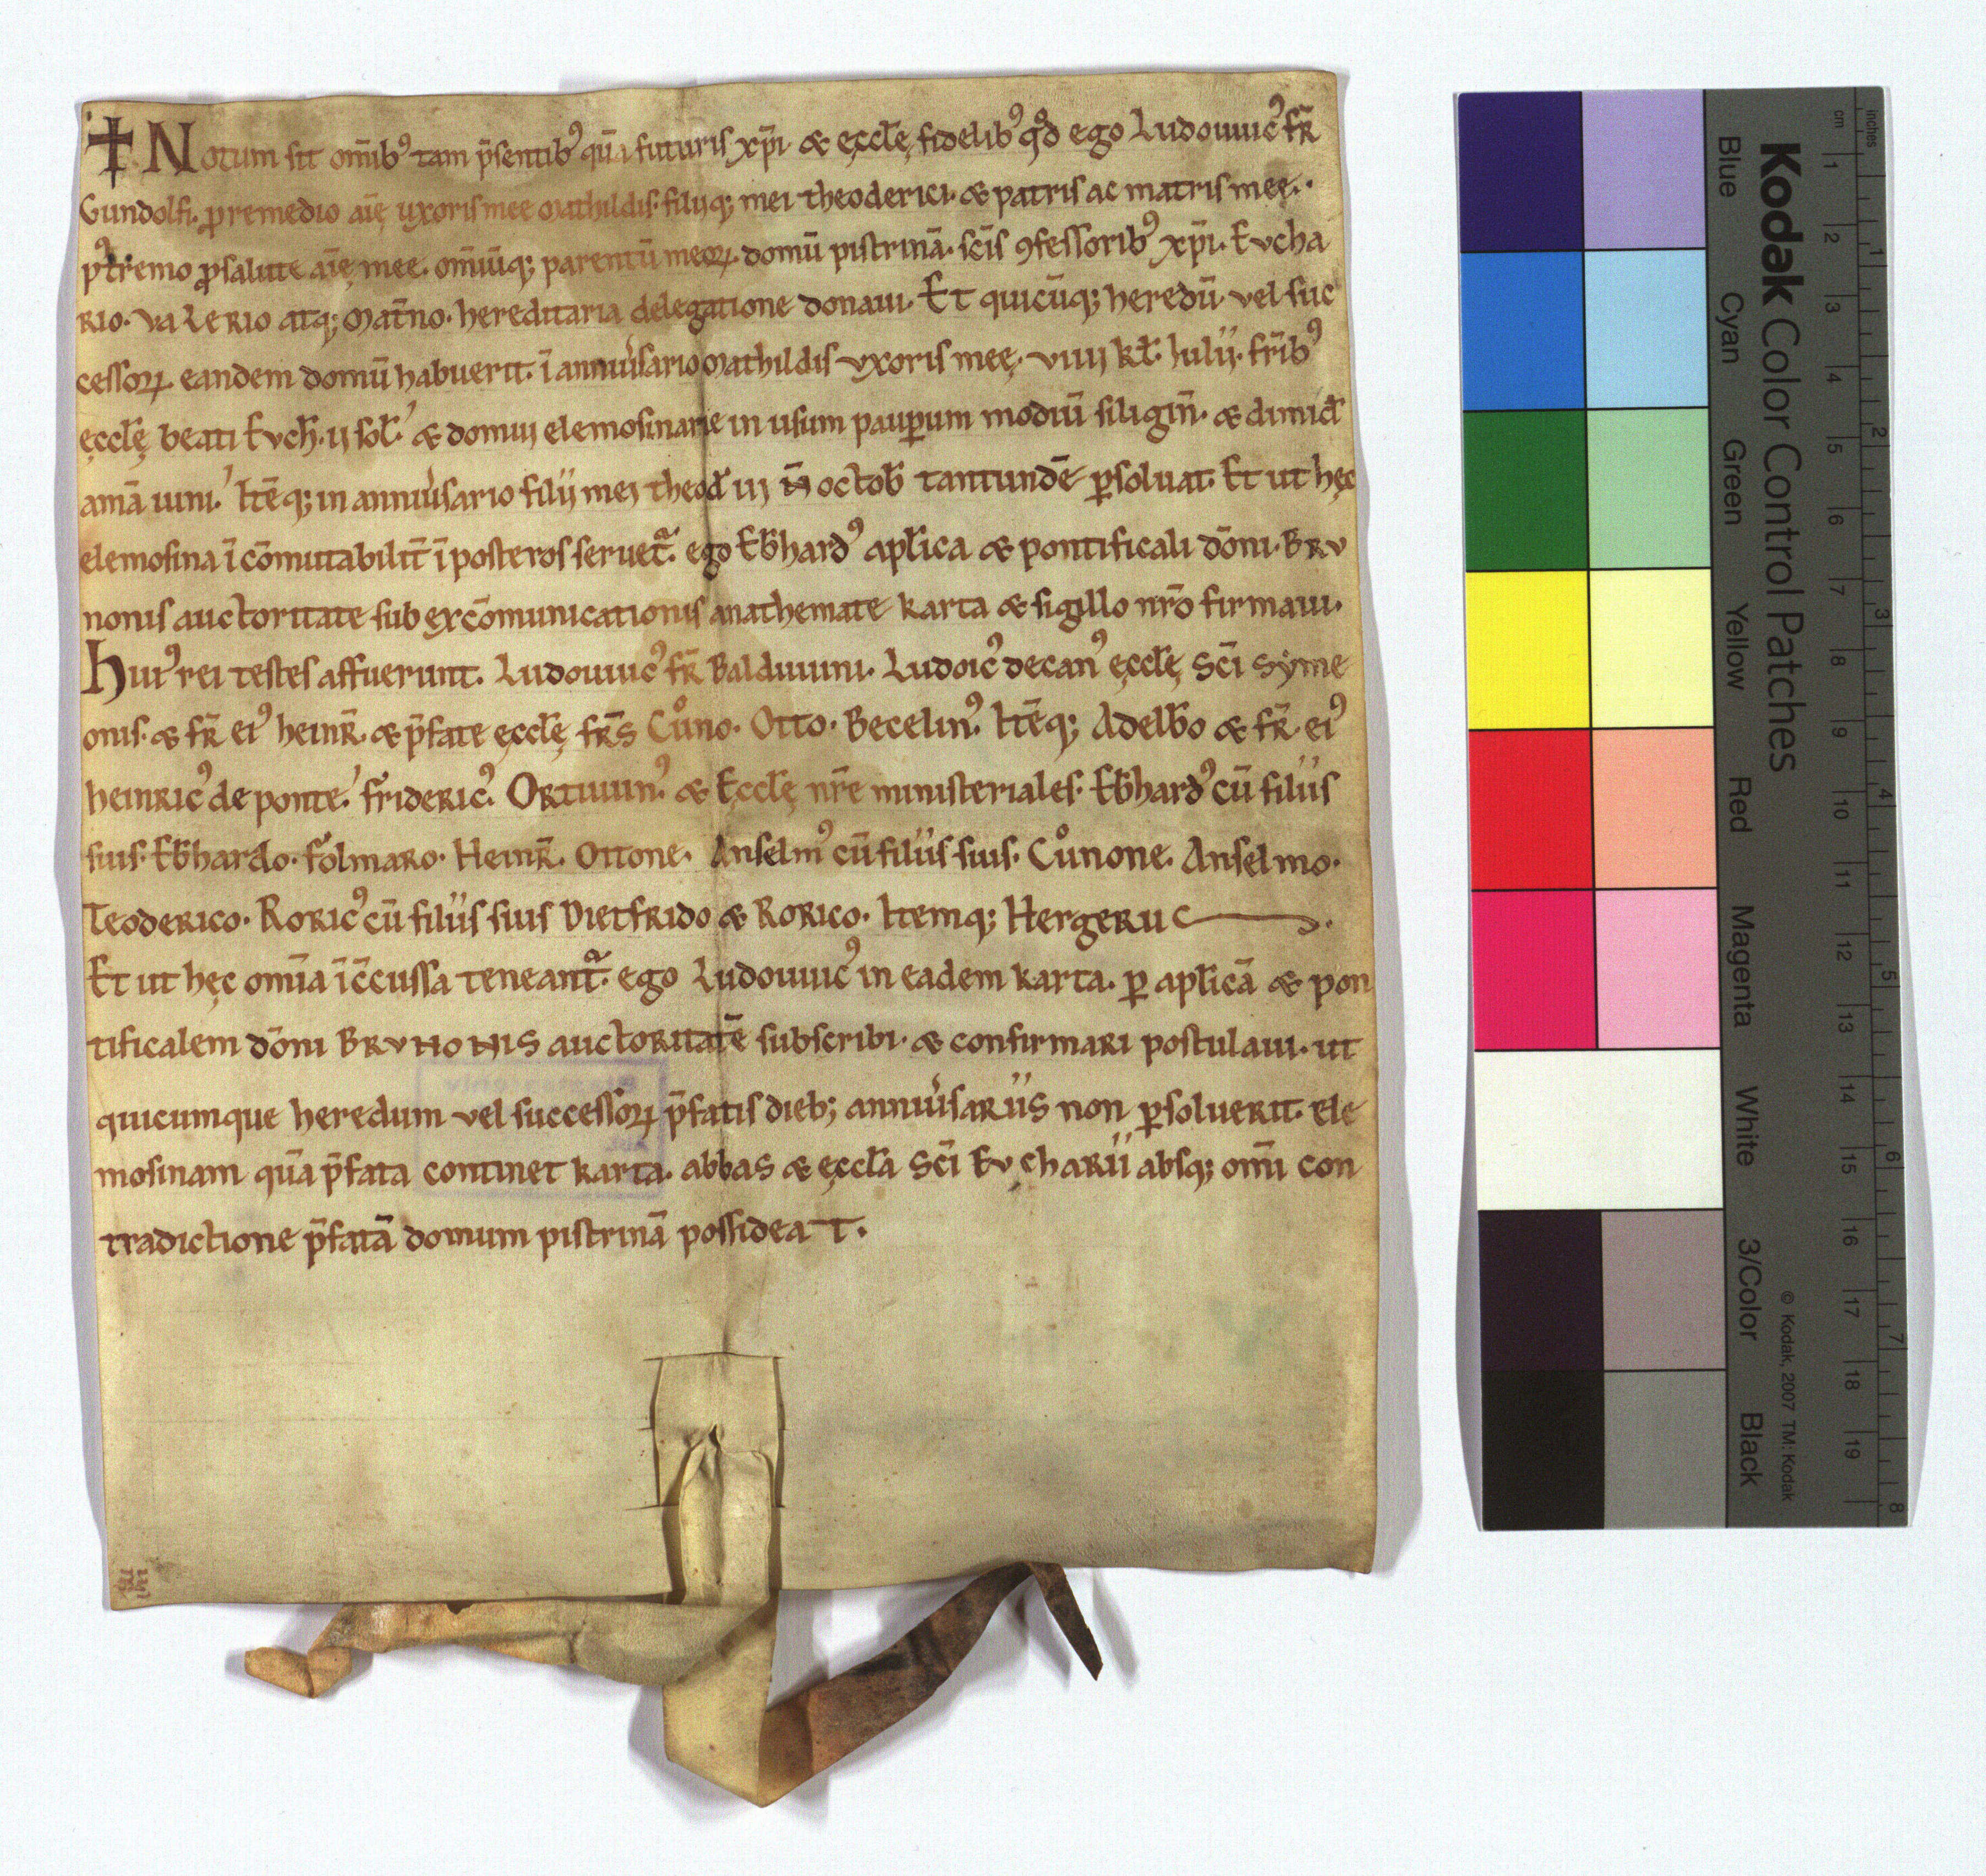 ✝ Notum sit om̄ibꝰ tam p̄sentibꝰ quā futuris xp̄i & ęccłę fidelibꝰ qd̊ ego Ludouuicꝰ fr̄
Gundolfi. ꝓ remedio aīę uxoris mee Mathildis. filiiq; mei theoderici. & patris ac matris meę.
ꝓ salute aīę mee. om̄iūq; parentū meoꝝ. domū pistrinā. sc̄is ꝯfessoribꝰ xp̄i. Eucha
rio. Valerio atq; Mat̄no. hereditaria delegatione donaui. Et quicūq; heredū vel suc
cessoꝝ eandem domū habuerit. ī anniu̓sario Mathildis vxoris meę. viiij kł. Iulij. fr̄ibꝰ
ęccłę beati Euch̄. ij soł. & domui elemosinarie in usum pauꝑum modiū siligin̄. & dimid̄
amā uini. Itēq; in anniu̓sario filij mei theod̄ iij N̄ octob̄ tantundē ꝑsoluat. Et ut hęc
elemosina ī cōmutabilit̄ ī posteros seruet᷑. ego Eb̄hardꝰ apłica & pontificali dōni. BRV
nonis auctoritate sub excōmunicationis anathemate karta & sigillo nr̄o firmaui.
Huiꝰ rei testes affuerunt. Ludouuicꝰ fr̄ Balduuini. Ludoicꝰ decanꝰ ęccłę sc̄i Syme
onis. & fr̄ eiꝰ heinr̄. & p̄fate ęccłę fr̄s Cůno. Otto. Becelinꝰ. Itēq; Adelb̄o & fr̄ eiꝰ
heinricꝰ de ponte. fridericꝰ. Ortuuinꝰ. & Ęccłę nr̄e ministeriales. Eb̄hardꝰ cū filiis
suis. Eb̄hardo. folmaro. Heinr̄. Ottone. Anselmꝰ cū filiis suis. Cůnone. Anselmo.
Teoderico. Roricꝰ cū filiis suis Dietfrido & Rorico. Itemq; Hergeruc.
Et ut hęc om̄ia īc̄cussa teneant᷑. ego Ludouuicꝰ in eadem karta. ꝑ apłicā & pon
tificalem dōni BRVNONIS auctoritatē subscribi. & confirmari postulaui. ut
quicumque heredum vel successoꝝ p̄fatis dieb; anniu̓sariis non ꝑsoluerit. ele
mosinam quā p̄fata continet karta. abbas & ęccła sc̄i Eucharii absq; om̄i con
tradictione p̄fatā domum pistrinā possideat.
Kodak Color Control Patches
Blue Cyan Green Yellow Red Magenta White 3/Color Black
© Kodak, 2007 TM: Kodak
cm 1 2 3 4 5 6 7 8 9 10 11 12 13 14 15 16 17 18 19
inches 1 2 3 4 5 6 7 8